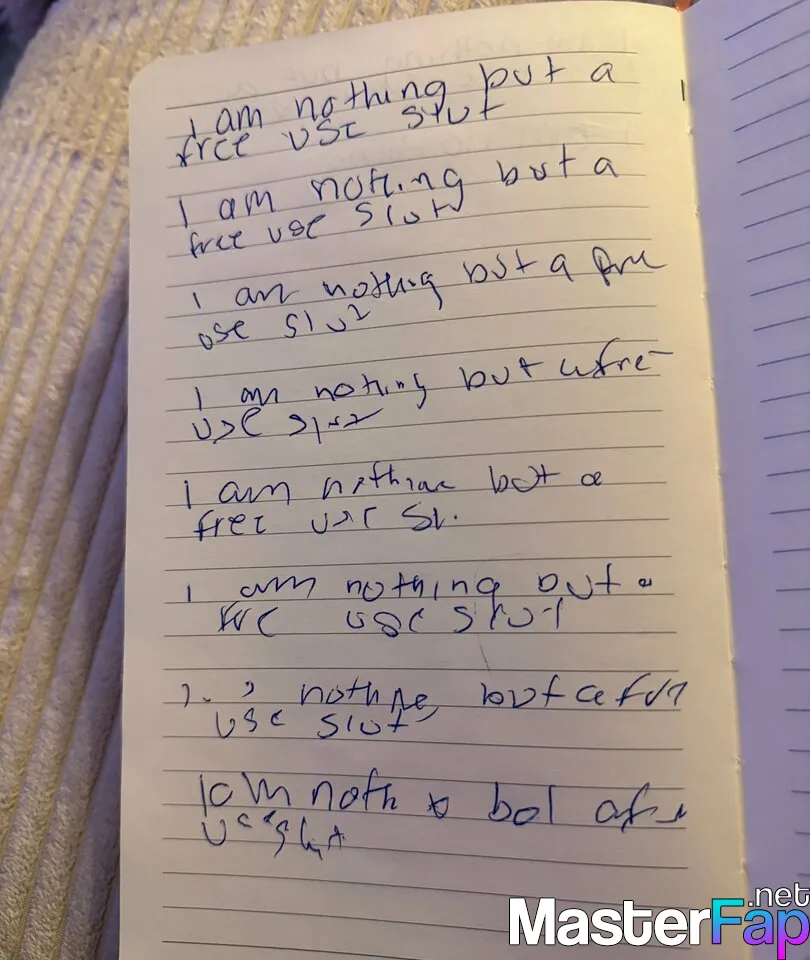 I am nothing but a
free use slut
I am nothing but a
free use slut
I am nothing but a free
use slut
I am nothing but a free
use slut
I am nothing but a
free use sl.
I am nothing but a
free use slut
nothing but a
use slut
I am noth
use slut
MasterFap.net